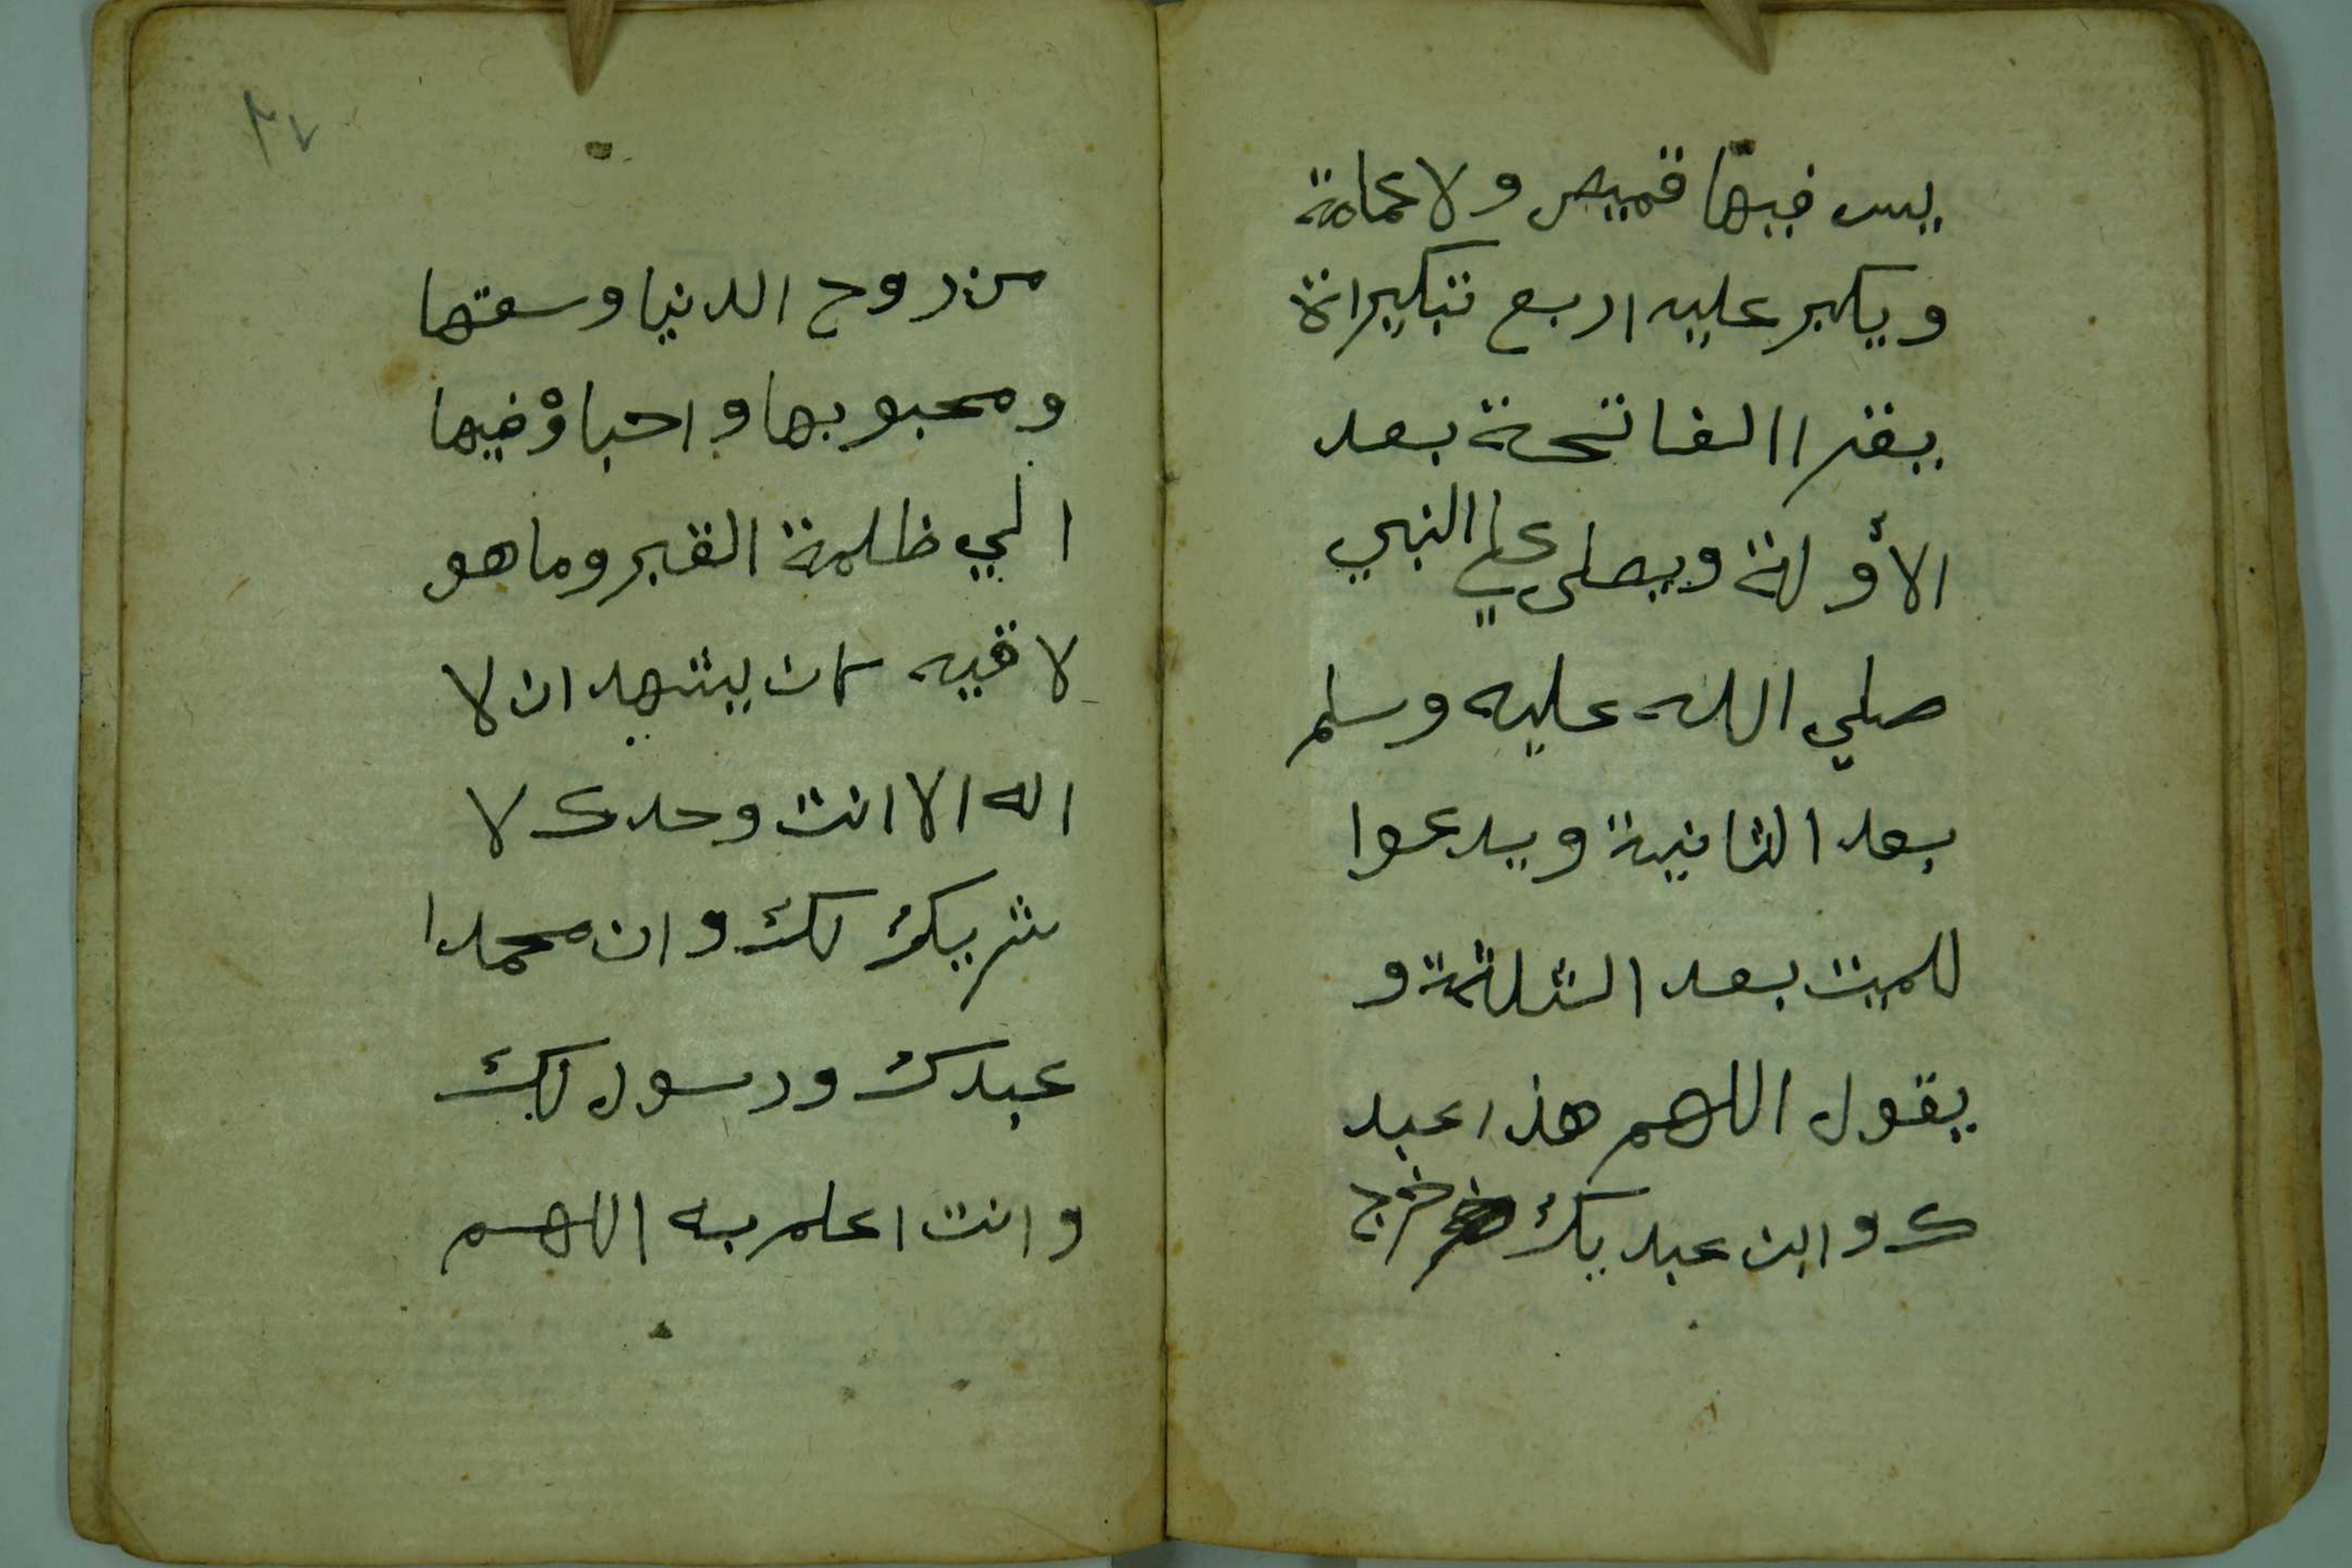 يس فيها قميص ولا عمامة
ويكبر عليه اربع تكبيراة
يقرا الفاتحة بعد
الأولة ويصلى علي النبي
صلي الله عليه وسلم
بعد الثانية ويدعوا
للميت بعد الثلثة و
يقول اللهم هذا عبد
ك وابن عبديك خرج
٣٧
من روح الدنيا وسعتها
ومحبوبها واحباؤ فيها
الي ظلمة القبر وما هو
لاقيه كان يشهد ان لا
اله الا انت وحدك لا
شريك لك وان محمدا
عبدك ورسول لك
وانت اعلم به اللهم